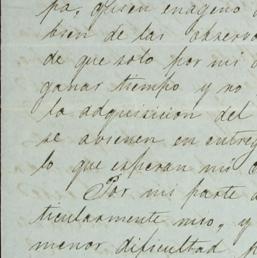 pa, quien enageno
bien de las observa
de que solo por mi
ganar tiempo y no
la adquisicion del
se avienen en entreg
lo que esperan mi
Por mi parte
ticularmente mio, y
menor dificultad